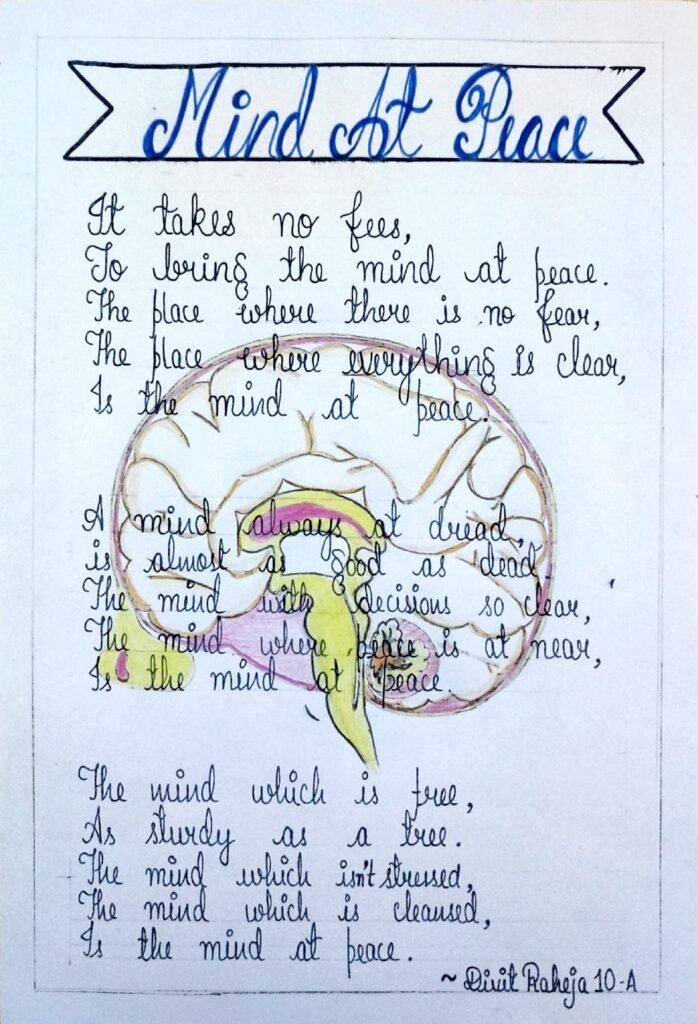 Mind At Peace
It takes no fees,
To bring the mind at peace.
The place where there is no fear,
The place where everything is clear,
Is the mind at peace.
A mind always at dread,
is almost as good as dead.
The mind with decisions so clear,
The mind where peace is at near,
Is the mind at peace.
The mind which is free,
As sturdy as a tree.
The mind which isn't stressed,
The mind which is cleansed,
Is the mind at peace.
~ Divit Raheja 10-A